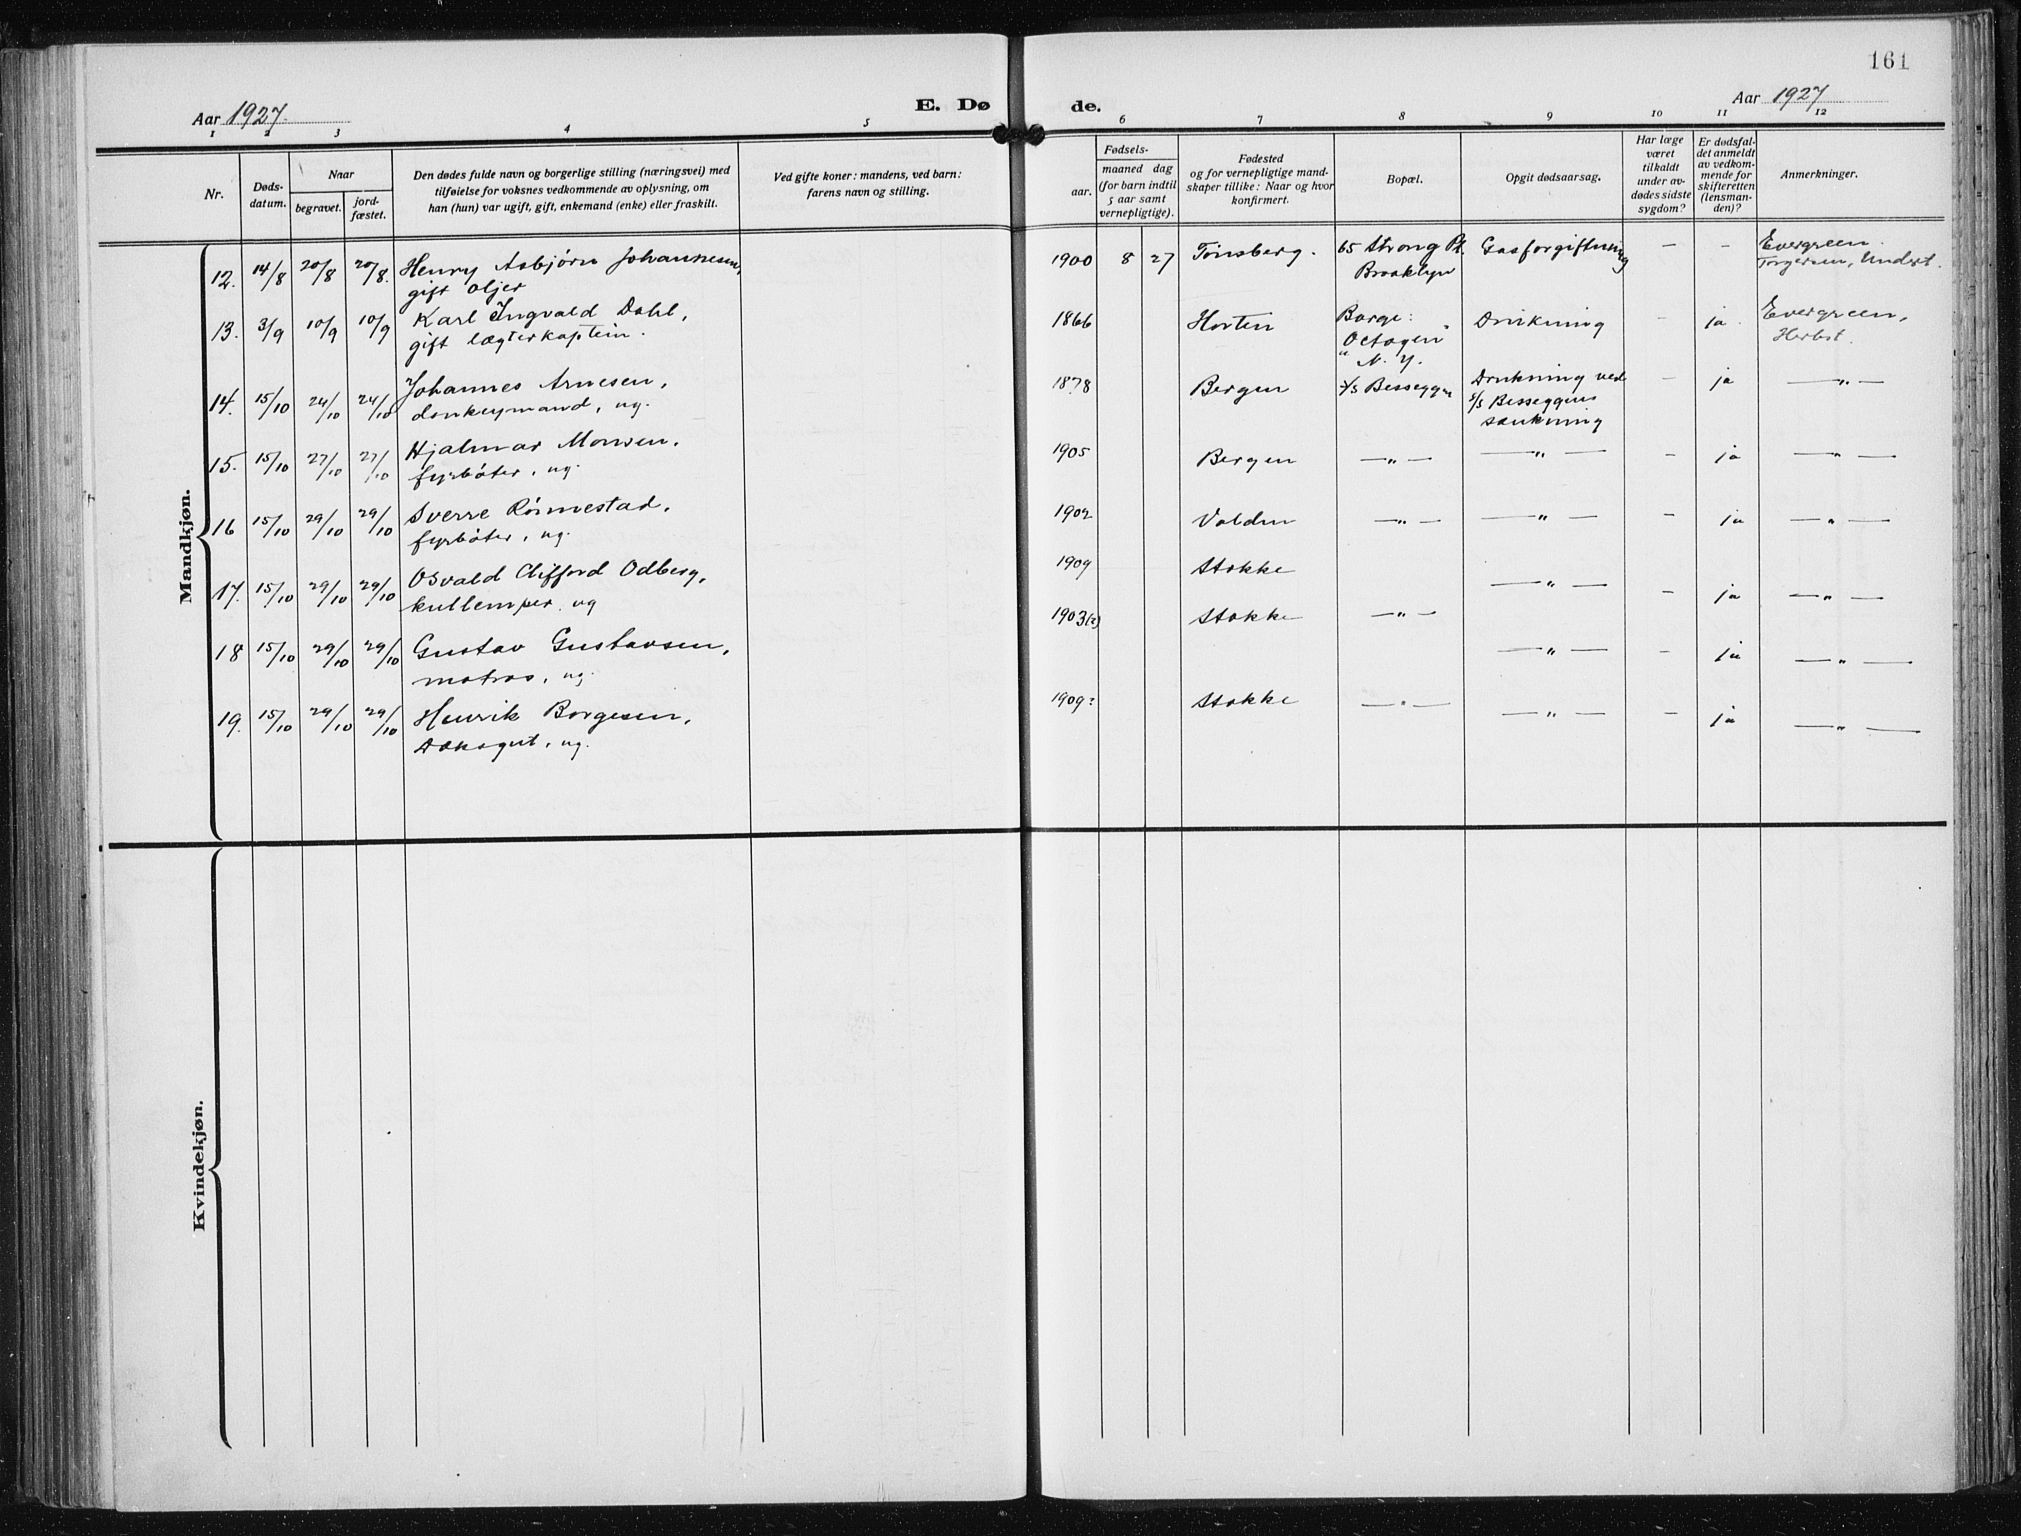 161
Aar 1927
E. Dø
de.
Aar 1927
1 2 3 4 5 6 7 8 9 10 11 12
Nr.
Døds-
datum.
Naar
begravet.
jord-
fæstet.
Den dødes fulde navn og borgerlige stilling (næringsvei) med
tilføielse for voksnes vedkommende av oplysning, om
han (hun) var ugift, gift, enkemand (enke) eller fraskilt.
Ved gifte koner: mandens, ved barn:
farens navn og stilling.
Fødsels-
aar.
maaned dag
(for barn indtil
5 aar samt
vernepligtige).
Fødested
og for vernepligtige mand-
skaper tillike: Naar og hvor
konfirmert.
Bopæl.
Opgit dødsaarsag.
Har læge
været
tilkaldt
under av-
dødes sidste
sygdom?
Er dødsfal-
det anmeldt
av vedkom-
mende for
skifteretten
(lensman-
den)?
Anmerkninger.
Mandkjøn.
12. 14/8 20/8 20/8. Henry Asbjørn Johannesen,
gift oljer
1900 8 27 Tønsberg. 65 Strong Pl.
Brooklyn
Gasforgiftning
- -
Evergreen.
Torgersen, Undert.
13. 3/9 10/9 10/9 Karl Ingvald Dahl,
gift lægterkaptein.
1866 Horten Barge:
"Octogen"
N. Y.
Drukning
- ja.
Evergreen,
Herbst.
14. 15/10 24/10 24/10 Johannes Arnesen,
donkeymand, ug.
1878 Bergen s/s Besseggen Drukning ved
s/s Besseggens
sænkning
- ja —"—
15. 15/10 27/10 27/10 Hjalmar Monsen,
fyrbøter, ug.
1905 Bergen —"— —"— - ja —"—
16 15/10 29/10 29/10 Sverre Rönnestad,
fyrbøter, ug.
1902 —"— —"— - ja —"—
17. 15/10 29/10 29/10 Osvald Clifford Odberg,
kullemper, ug
1909 Stokke —"— - ja —"—
18 15/10 29/10 29/10 Gustav Gustavsen,
matros, ug.
1903(?) Stokke —"— —"— - ja —"—
19. 15/10 29/10 29/10 Henrik Borgesen,
Dæksgut, ug.
1909? Stokke —"— —"— - ja —"—
Kvindekjøn.